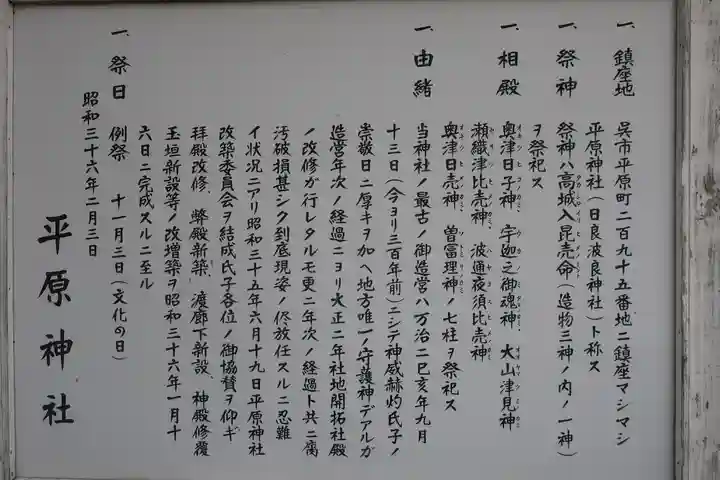 一、鎮座地 呉市平原町二百九十五番地ニ鎮座マシマシ
平原神社（日良波良神社）ト称ス
一、祭神 祭神ハ高城入昆売命（造物三神ノ内ノ一神）
ヲ祭祀ス
一、相殿 奥津日子神 宇迦之御魂神 大山津見神
瀬織津比売神 波通夜須比売神
奥津日売神 曽富理神ノ七柱ヲ祭祀ス
一、由緒 当神社ノ最古ノ御造営ハ万治二巳亥年九月
十三日（今ヨリ三百年前）ニシテ神威赫灼氏子ノ
崇敬日ニ厚キヲ加ヘ地方唯一ノ守護神デアルガ
造営年次ノ経過ニヨリ大正二年社地開拓社殿
ノ改修ガ行レタルモ更ニ年次ノ経過ト共ニ腐
汚破損甚シク到底現姿ノ侭放任スルニ忍難
イ状況ニアリ昭和三十五年六月十九日平原神社
改築委員会ヲ結成氏子各位ノ御協賛ヲ仰ギ
拝殿改修 弊殿新築 渡廊下新設 神殿修覆
玉垣新設等ノ改増築ヲ昭和三十六年一月十
六日ニ完成スルニ至ル
一、祭日 例祭 十一月三日（文化の日）
昭和三十六年二月三日
平原神社